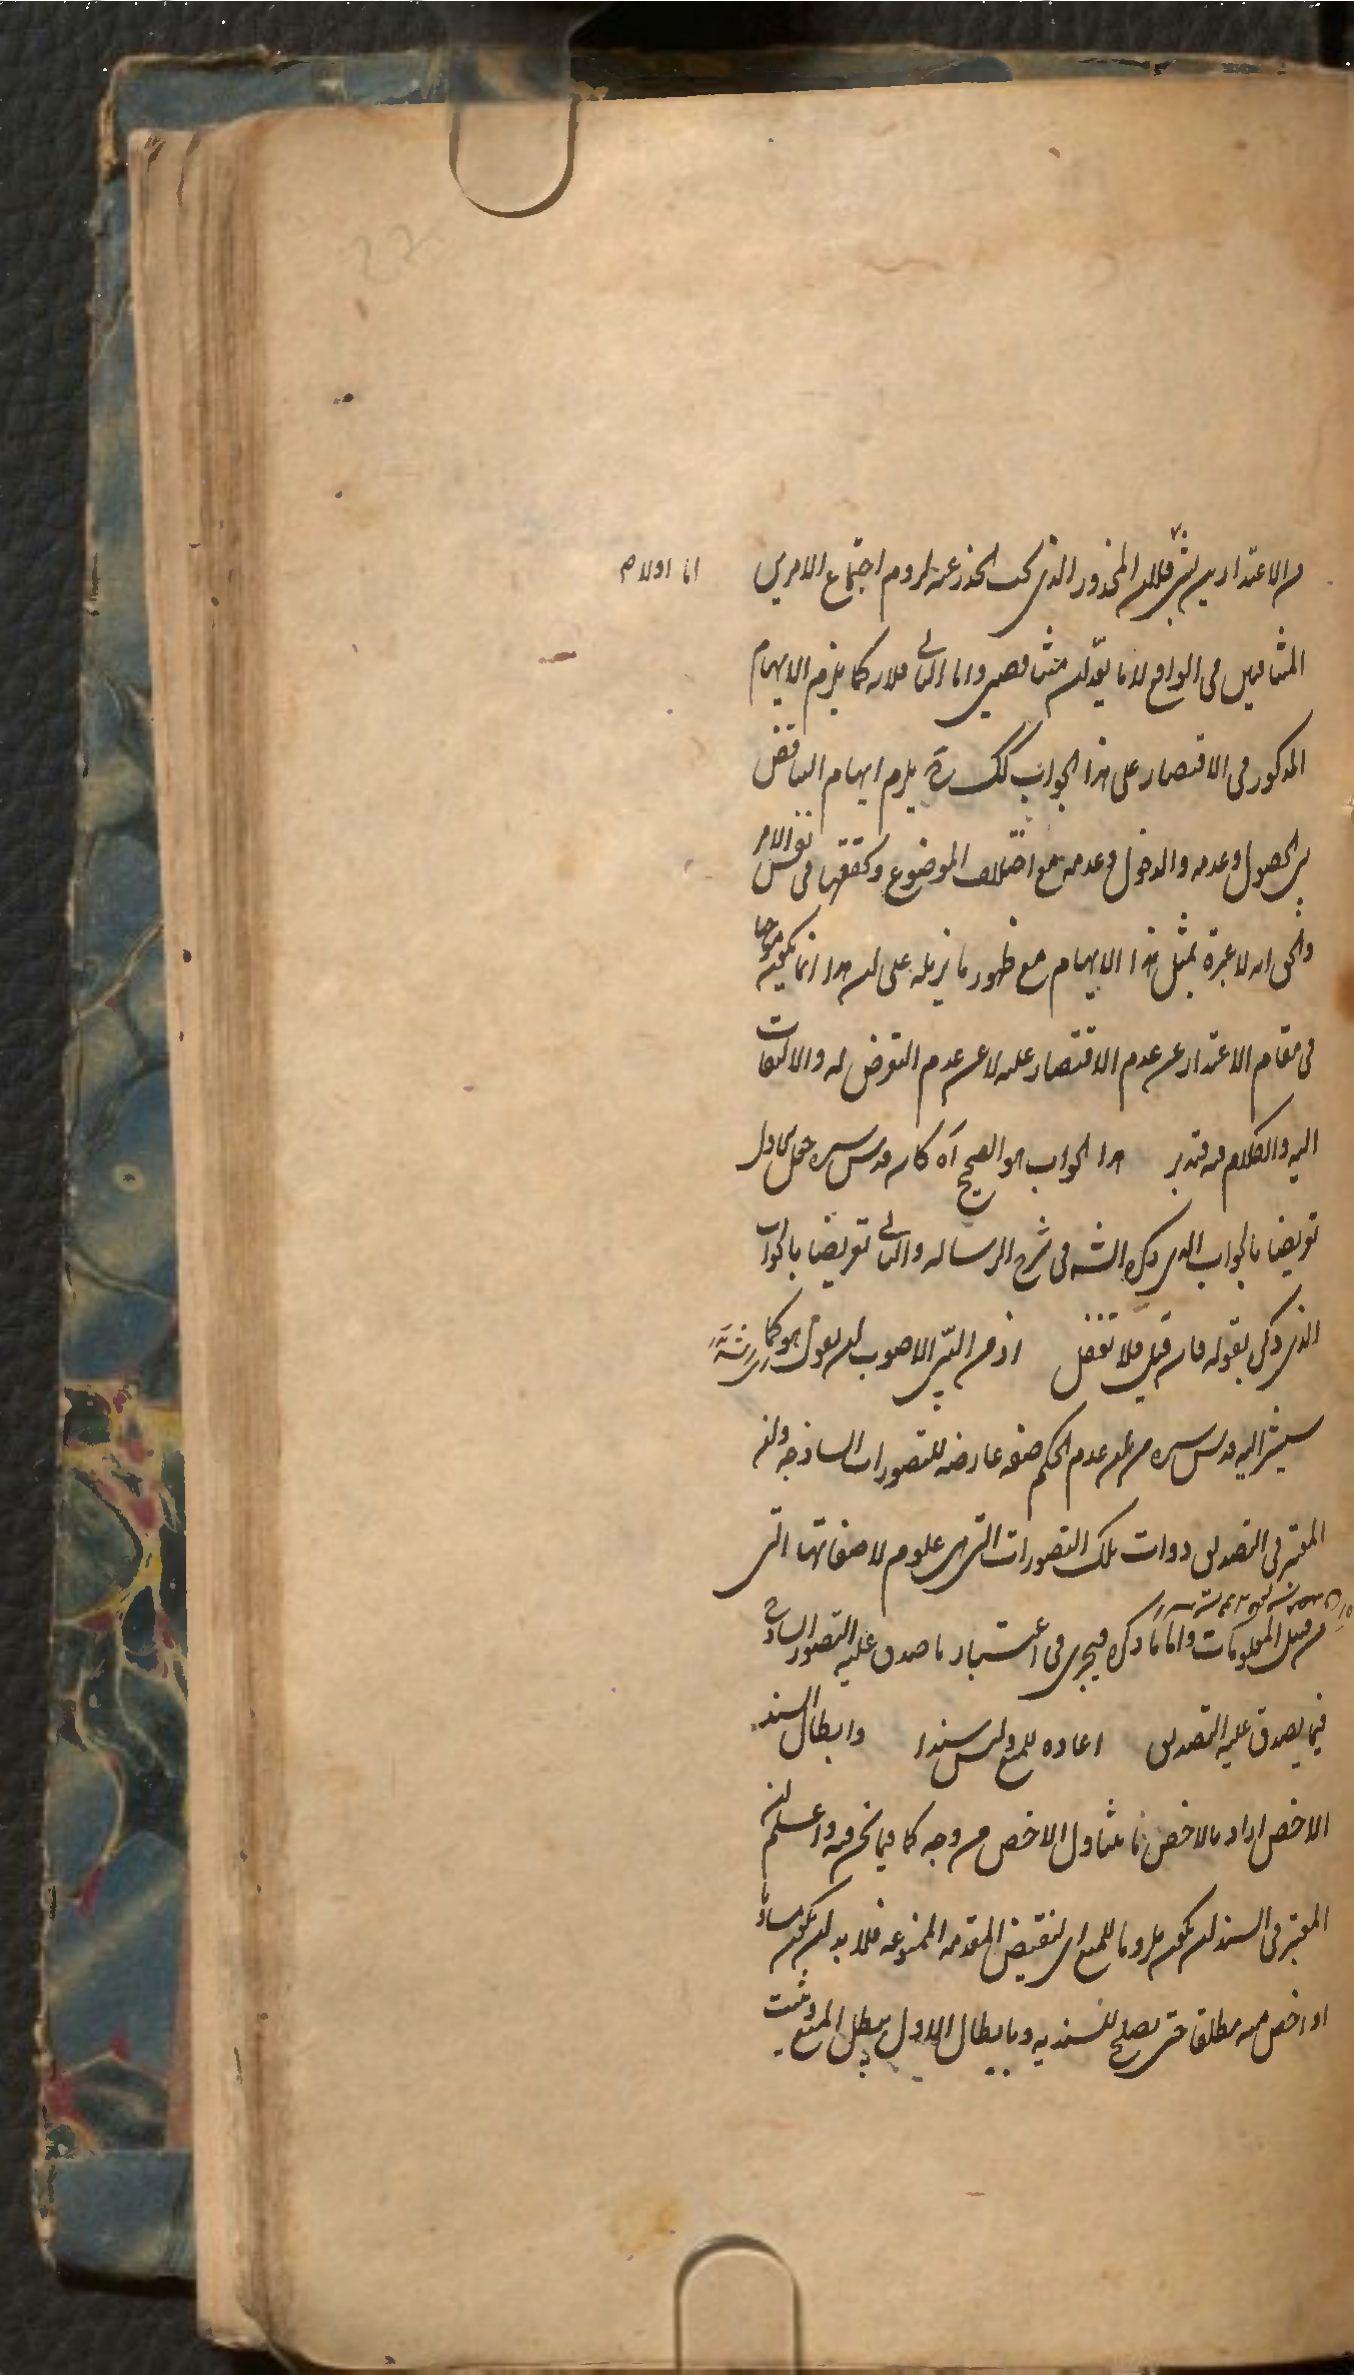 من الاعتذارين بشئ فلان المحذور الذى يجب الحذر عنه لزوم اجتماع الامرين
اما اولا م
المتنافيين فى الواقع لا ما يعد ان متناقضين واما الثانى فلانه كما يلزم الايهام
المذكور فى الاقتصار على هذا الجواب كك يلزم ايهام التناقض
بين الحصول وعدمه والدخول وعدمه مع اختلاف الموضوع وتحققها فى نفس الامر
والحق انه لا عبرة بمثل هذا الايهام مع ظهور ما يزيله على ان هذا انما يكون موجها
فى مقام الاعتذار عن عدم الاقتصار عليه لا عن عدم التعرض له والالتفات
اليه والكلام فيه فتدبر هذا الجواب هو الصحيح آه كانه قدس سره حمل الاول
تعريضا بالجواب الذى ذكره الشه فى شرح الرسالة والثانى تعريضا بالجواب
الذى ذكر بقوله فان قيل فلا تغفل اذ من البين الاصوب ان يقول هو كما
سيشير اليه قدس سره من ان عدم الحكم صفة عارضة للتصورات الساذجة وان
المعتبر فى التصديق ذوات تلك التصورات التى هى علوم لا صفاتها التى
من قبيل المعلومات واما ما ذكره فيجرى فى اعتبار ما صدق عليه التصور الساذج
فيما يصدق عليه التصديق اعاده للمنع وليس سندا وابطال السند
الاخص اراد بالاخص ما يتناول الاخص من وجه كما فيما نحن فيه واعلم ان
المعتبر فى السند ان يكون ملزوما للمنع اى لنقيض المقدمة الممنوعة فلا بد ان يكون مساويا
او اخص منه مطلقا حتى يصلح للسندية وبابطال الاول يبطل المنع ويثبت